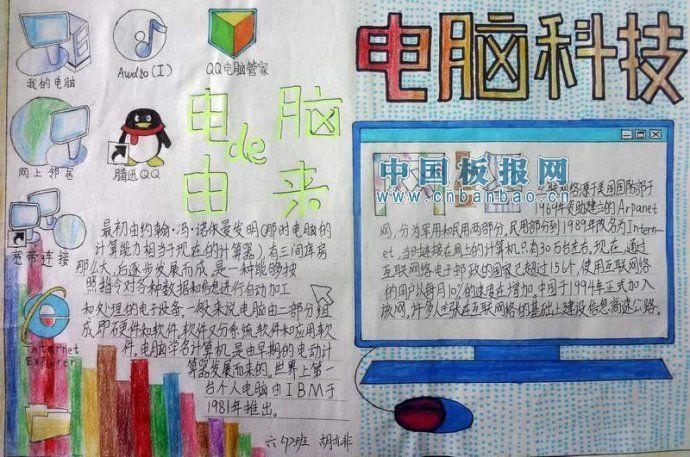 我的电脑
Audio(I)
QQ电脑管家
网上邻居
腾迅QQ
宽带连接
Internet
Explorer
电脑
de
由来
最初由约翰·冯·诺依曼发明(那时电脑的
计算能力相当于现在的计算器),有三间库房
那么大,后逐步发展而成,是一种能够按
照指令对各种数据和信息进行自动加工
和处理的电子设备。一般来说,电脑由二部分组
成,即:硬件和软件,软件又分系统软件和应用软
件。电脑学名计算机,是由早期的电动计
算器发展而来的。世界上第一
台个人电脑由IBM于
1981年推出。
六〈7〉班
电脑科技
中国板报网
www.cnbanbao.cn
联网络源于美国国防部于
1969年资助建立的Arpanet
网,分为军用和民用两部分,民用部分到1989年改名为Intern-
et,当时连接在网上的计算机只有30万台左右。现在,通过
互联网络电子邮政的国家已超过154,使用互联网络
的用户以每月10%的速度在增加。中国于1994年正式加入
该网。许多人主张在互联网络的基础上建设信息高速公路。